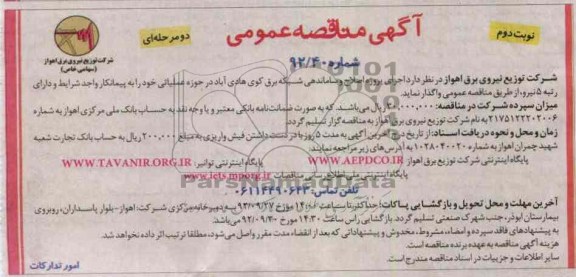 آگهی مناقصه عمومی
نوبت دوم
دو مرحله‌ای
شماره ۹۲/۴۰
شرکت توزیع نیروی برق اهواز
(سهامی خاص)
شرکت توزیع نیروی برق اهواز در نظر دارد اجرای پروژه اصلاح و ساماندهی شبکه برق کوی هادی آباد در حوزه عملیاتی خود را به پیمانکار واجد شرایط و دارای
رتبه ۵ نیرو، از طریق مناقصه عمومی واگذار نماید.
میزان سپرده شرکت در مناقصه: ریال می‌باشد. که به صورت ضمانت‌نامه بانکی معتبر و یا وجه نقد به حساب بانک ملی مرکزی اهواز به شماره
۲۱۷۵۱۲۲۲۰۲۰۰۶ به نام شرکت توزیع نیروی برق اهواز به مناقصه گزار تسلیم گردد.
زمان و محل و نحوه دریافت اسناد: از تاریخ درج آخرین آگهی به مدت ۵ روز با در دست داشتن فیش واریزی به مبلغ ۲۰۰،۰۰۰ ریال به حساب بانک تجارت شعبه
شهید چمران اهواز به شماره ۱۰۲۸۰۴۰۰۲۰ به آدرس‌های زیر مراجعه نمایند:
پایگاه اینترنتی شرکت توزیع برق اهواز WWW.AEPDCO.IR پایگاه اینترنتی توانیر: WWW.TAVANIR.ORG.IR
پایگاه اینترنتی ملی اطلاع رسانی مناقصات www.iets.mporg.ir
تلفن تماس: ۰۶۱۱۴۴۹۰۶۲۳
آخرین مهلت و محل تحویل و بازگشایی پاکات: حداکثر تا ساعت ۱۴:۰۰ مورخ به دبیرخانه مرکزی شرکت: اهواز-بلوار پاسداران، روبروی
بیمارستان ابوذر، جنب شهرک صنعتی تسلیم گردد. بازگشایی راس ساعت ۱۴:۳۰ مورخ می‌باشد.
به پیشنهادهای فاقد سپرده و امضاء، مشروط، مخدوش و پیشنهاداتی که بعد از انقضاء مدت مقرر واصل می‌شود، مطلقا ترتیب اثر داده نخواهد شد.
هزینه آگهی مناقصه به عهده برنده مناقصه است.
سایر اطلاعات و جزییات در اسناد مناقصه مندرج است.
امور تدارکات
ParsNamadData